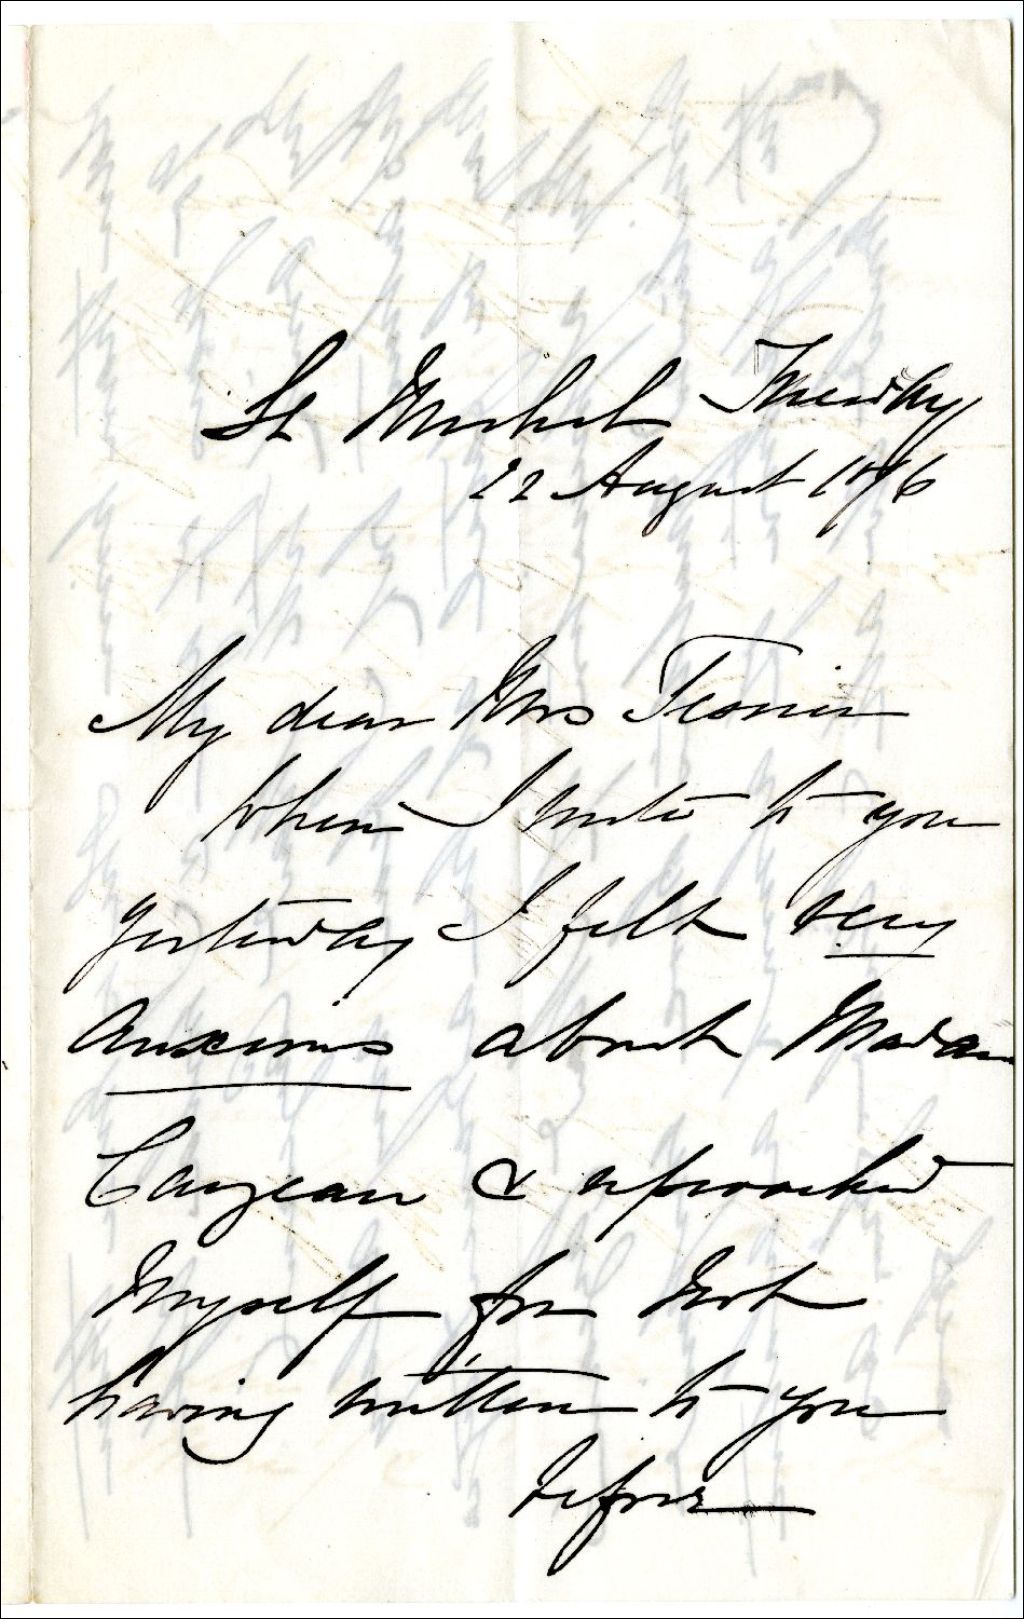 St Michel Tuesday
22 August 1876
My dear Mrs
When I wrote to you
yesterday I felt very
anxious about Madam
& reproached
myself for not
having written to you
before